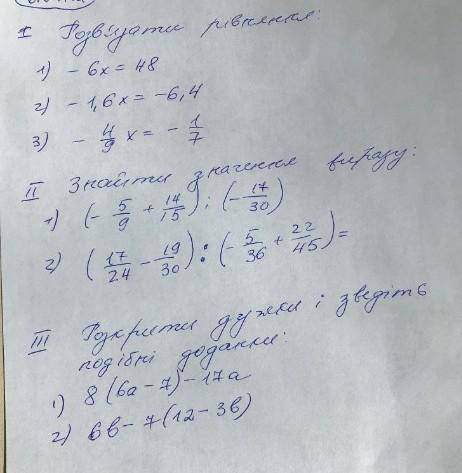 I Розв'язати рівняння:
1) - 6x = 48
2) - 1,6x = -6,4
3) - 4/9 x = - 1/7
II Знайти значення виразу:
1) (- 5/9 + 14/15) : (- 17/30)
2) (17/24 - 19/30) : (- 5/36 + 22/45) =
III Розкрити дужки і зведіть
подібні доданки:
1) 8(6a - 7) - 17a
2) 6b - 7(12 - 3b)